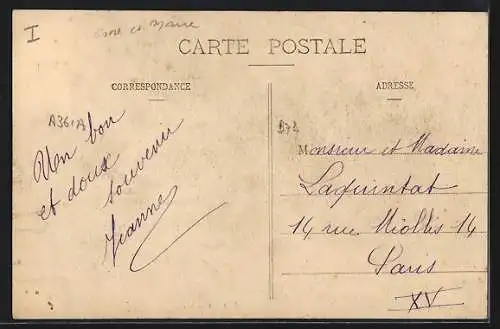 I
CARTE POSTALE
CORRESPONDANCE
ADRESSE
A361A
Un bon
et doux
souvenir
Jeanne
Monsieur et Madame
Laquintat
14 rue Miollis 14
Paris
XV